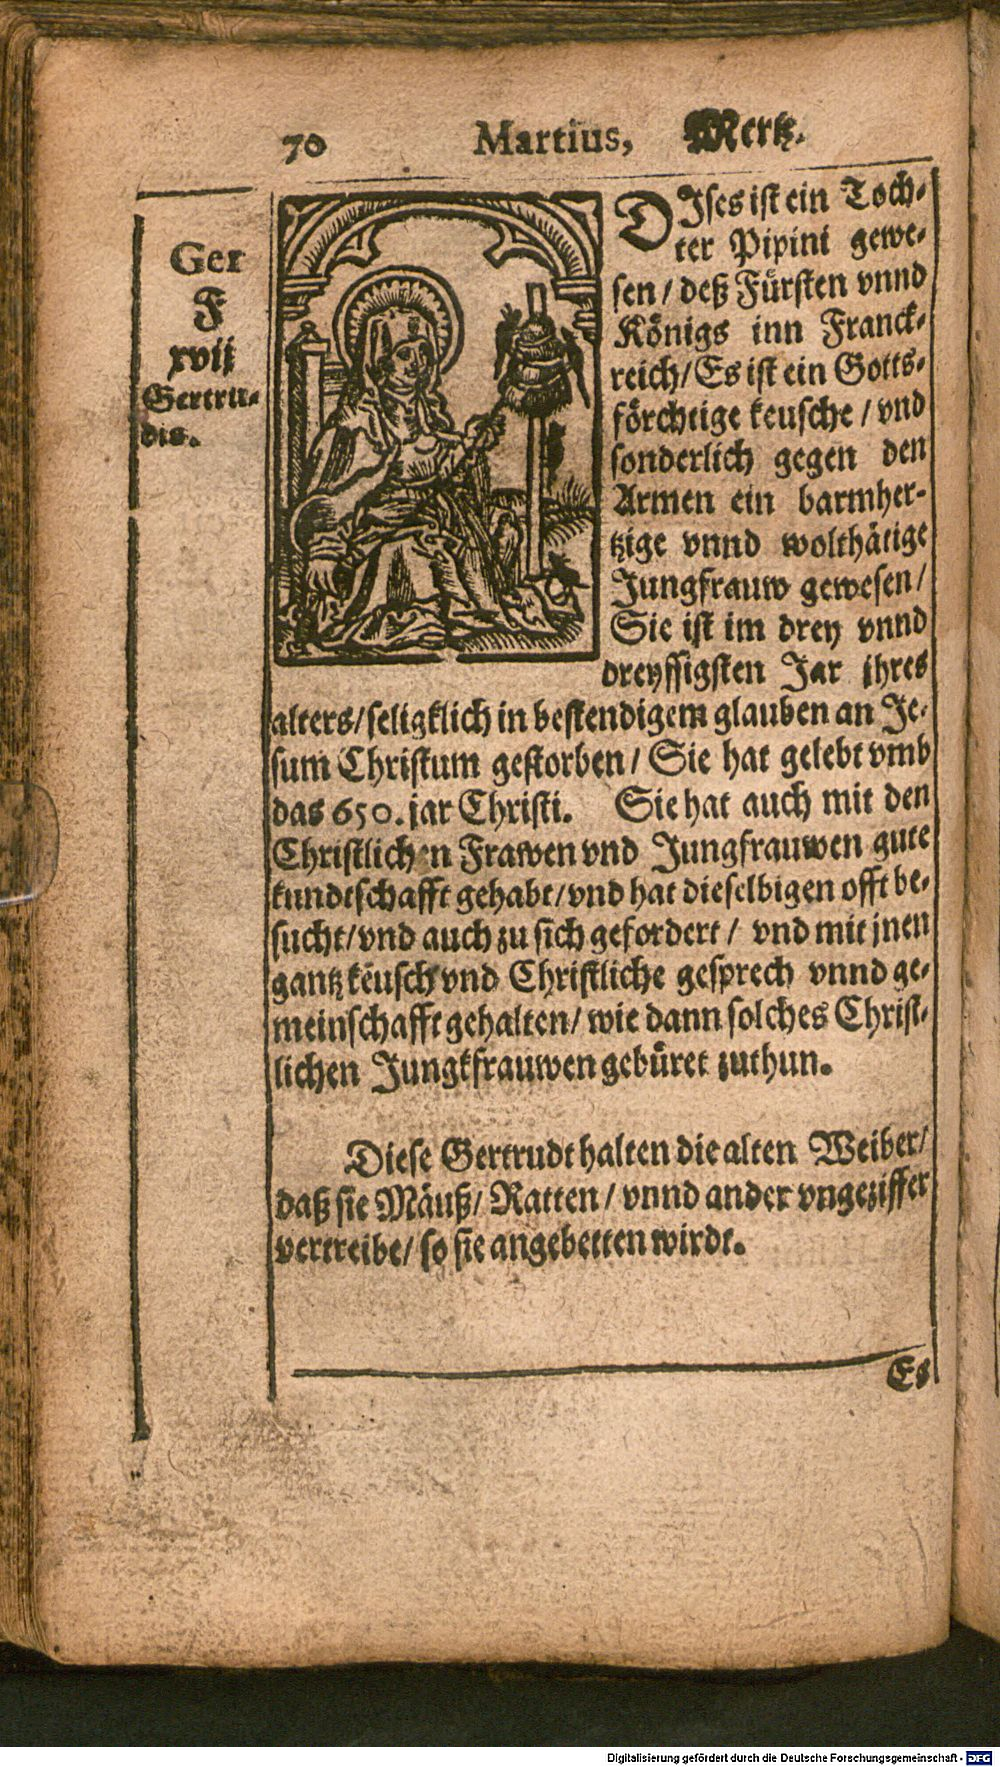 70 Martius, Mertz.
Ger
F
xvij
Gertru-
dis.
DIses ist ein Toch-
ter Pipini gewe-
sen / deß Fürsten vnnd
Königs inn Franck-
reich / Es ist ein Gotts-
förchtige keusche / vnd
sonderlich gegen den
Armen ein barmher-
tzige vnnd wolthätige
Jungfrauw gewesen /
Sie ist im drey vnnd
dreyssigsten Jar jhres
alters / seligklich in bestendigem glauben an Je-
sum Christum gestorben / Sie hat gelebt vmb
das 650. jar Christi. Sie hat auch mit den
Christlichen Frawen vnd Jungfrauwen gute
kundtschafft gehabt / vnd hat dieselbigen offt be-
sucht / vnd auch zu sich gefordert / vnd mit jnen
gantz keusch vnd Christliche gesprech vnnd ge-
meinschafft gehalten / wie dann solches Christ-
lichen Jungkfrauwen gebüret zuthun.
Diese Gertrudt halten die alten Weiber /
daß sie Mäuß / Ratten / vnnd ander vngeziffer
vertreibe / so sie angebetten wirdt.
Es
Digitalisierung gefördert durch die Deutsche Forschungsgemeinschaft - DFG